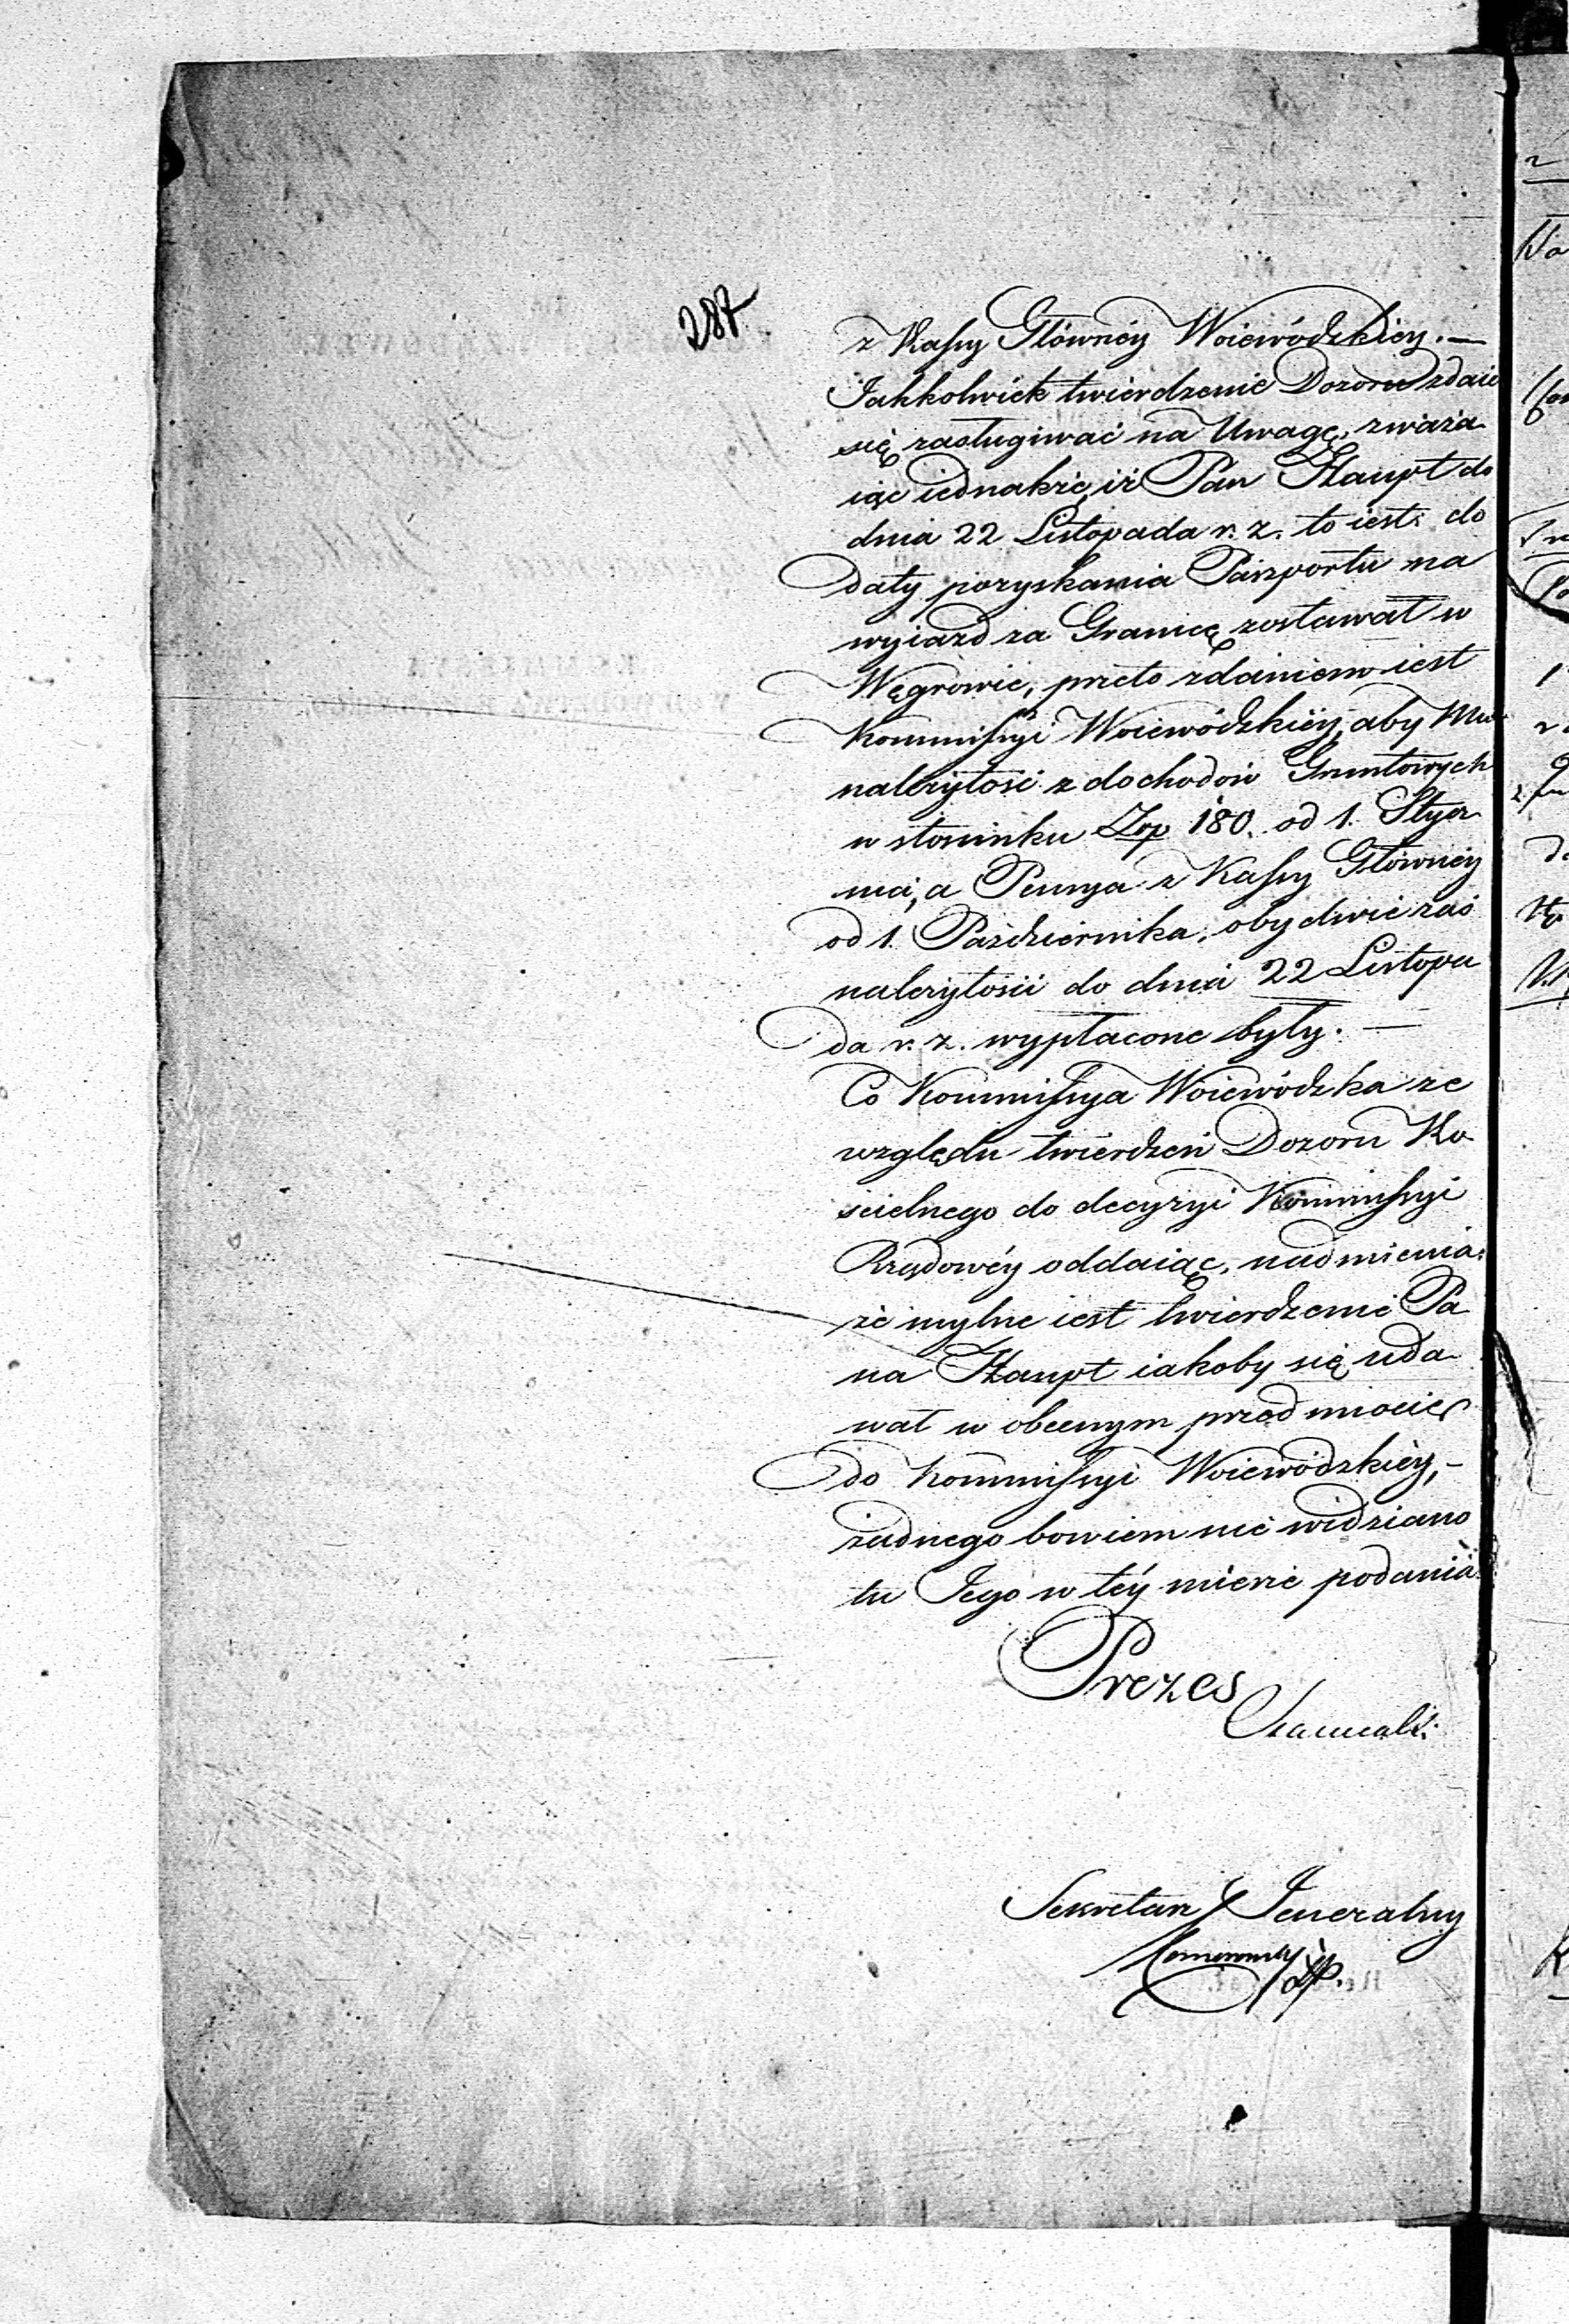 287
z Kassy Główney Woiewódzkiey. —
Jakkolwiek twierdzenie Dozoru zdaie
się zasługiwać na Uwagę, zważa
iąc iednakże, iż Pan Haupt do
dnia 22 Listopada r. z. to iest: do
daty pozyskania Paszportu na
wyiazd za Granicę zostawał w
Węgrowie, przeto zdaniem iest
Kommissyi Woiewódzkiey, aby Mu
należytość z dochodów Gruntowych
w stosunku Złp 180. od 1. Stycz
nia, a Pensya z Kassy Główney
od 1. Października, obydwie zaś
należytości do dnia 22 Listopa
da r. z. wypłacone były. —
Co Kommissya Woiewódzka ze
względu twierdzeń Dozoru Ko
ścielnego do decyzyi Kommissyi
Rządowéy oddaiąc, nadmienia,
że mylne iest twierdzenie Pa
na Haupt iakoby się uda
wał w obecnym przedmiocie
do Kommissyi Woiewódzkiéy, –
żadnego bowiem nie widziano
tu Jego w téy mierze podania
Prezes
Sekretarz Jeneralny